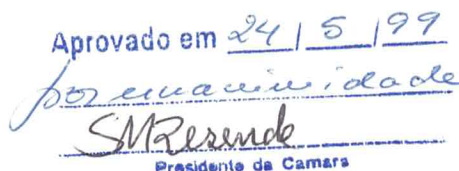 Aprovado em 24 / 5 / 99
por unanimidade
SMResende
Presidente da Camara